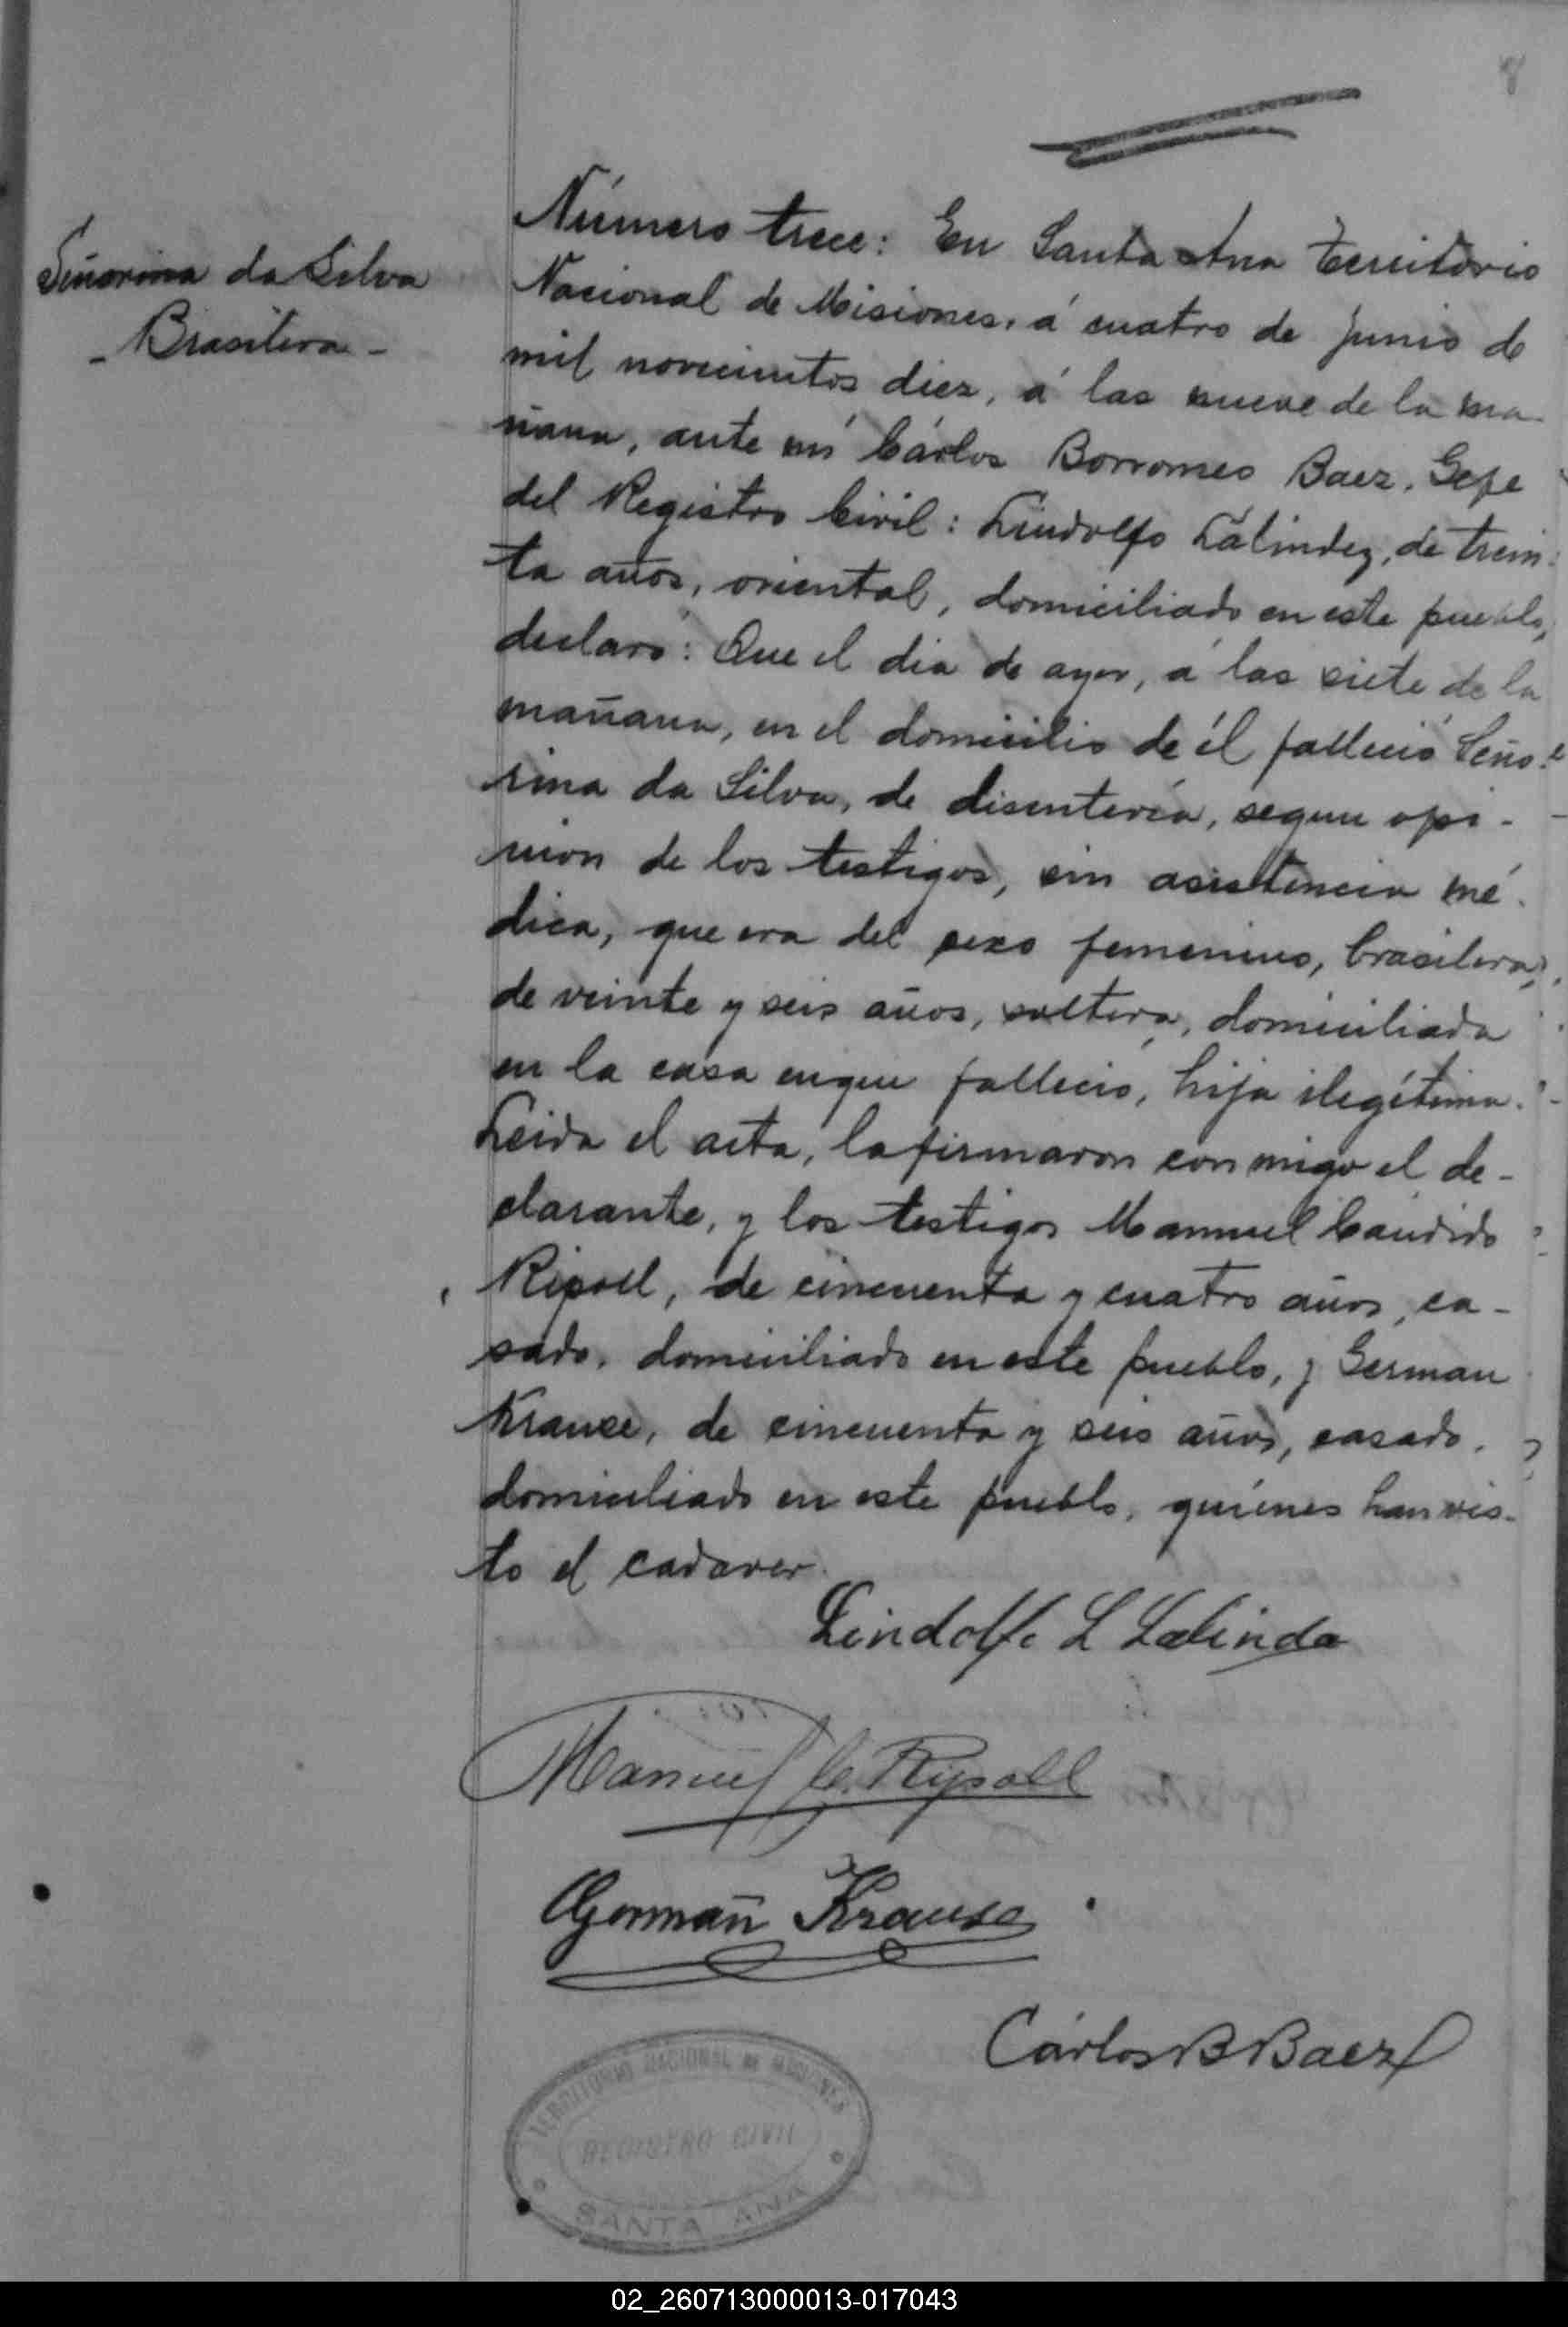 8
Señorina da Silva
- Brasilera -
Número trece: En Santa Ana Territorio
Nacional de Misiones, á cuatro de Junio de
mil novecientos diez, á las nueve de la ma-
ñana, ante mi Cárlos Borromeo Baez, Gefe
del Registro Civil: Lindolfo Lalindez, de trein-
ta años, oriental, domiciliado en este pueblo,
declaró: Que el dia de ayer, á las siete de la
mañana, en el domicilio de él falleció Seño-
rina da Silva, de disentería, segun opi-
nion de los testigos, sin asistencia mé-
dica, que era del sexo femenino, brasilera,
de veinte y seis años, soltera, domiciliada
en la casa en que falleció, hija ilegítima.
Leida el acta, la firmaron conmigo el de-
clarante, y los testigos Manuel Cándido
Ripoll, de cincuenta y cuatro años, ca-
sado, domiciliado en este pueblo, y German
Krause, de cincuenta y seis años, casado,
domiciliado en este pueblo, quiénes han vis-
to el cadaver.
Lindolfo L Lalinde
Manuel C. Rypoll
Germañ Krause
Cárlos B Baez
TERRITORIO NACIONAL DE MISIONES
REGISTRO CIVIL
SANTA ANA
02_260713000013-017043